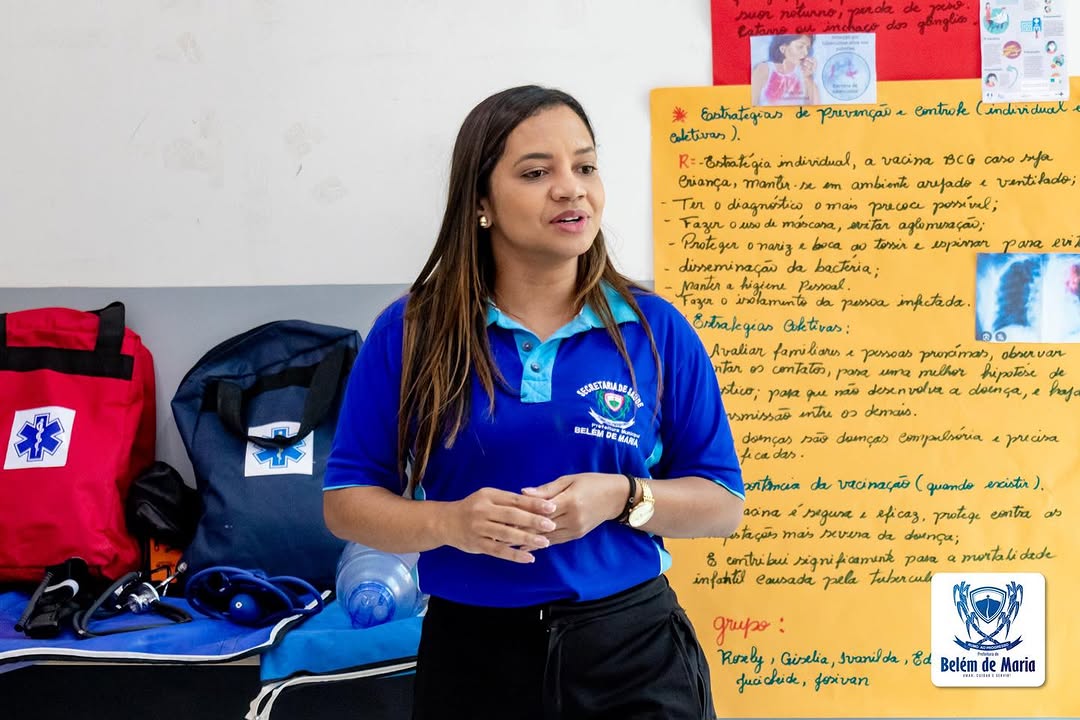 suor noturno, perda de peso
Catarro ou inchaço dos gânglios.
* Estratégias de prevenção e controle (individual e
coletivas).
R=-Estratégia individual, a vacina BCG caso seja
Criança, manter-se em ambiente arejado e ventilado;
- Ter o diagnóstico o mais precoce possível;
- Fazer o uso de máscara, evitar aglomeração;
- Proteger o nariz e boca ao tossir e espirrar para evit
- disseminação da bactéria;
- Manter a higiene Pessoal.
- Fazer o isolamento da pessoa infectada.
Estratégias Coletivas:
Avaliar familiares e pessoas proximas, observar
ntar os contatos, para uma melhor hipótese de
stico; para que não desenvolva a doença, e haja
nsmissão entre os demais.
doenças são doenças compulsória e precisa
ficadas.
portância da vacinação (quando existir).
acina é segura e eficaz, protege contra as
stações mais severa da doença;
E contribui significamente para a mortalidade
infantil causada pela tubercul
grupo:
Rosely, Giselia, Ivanilda, Ed
Jucicleide, Josivan
SECRETARIA DE SAÚDE
Prefeitura Municipal
BELÉM DE MARIA
RUMO AO PROGRESSO
Prefeitura de
Belém de Maria
AMAR, CUIDAR E SERVIR!